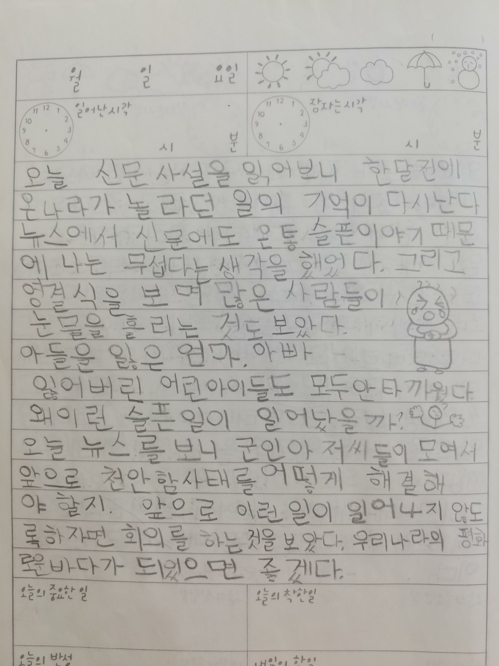 월 일 요일
일어난시각 시 분 잠자는시각 시 분
오늘 신문 사설을 읽어보니 한달전에
온나라가 놀라던 일의 기억이 다시난다
뉴스에서 신문에도 온통슬픈이야기 때문
에 나는 무섭다는생각을 했었다. 그리고
영결식을 보며 많은 사람들이
눈물을 흘리는 것도 보았다.
아들을 잃은 엄마, 아빠
잃어버린 어린아이들도 모두안타까웠다
왜이런 슬픈일이 일어났을까?
오늘 뉴스를 보니 군인아저씨들이 모여서
앞으로 천안함사태를 어떻게 해결해
야 할지. 앞으로 이런 일이 일어나지 않도
록하자면 회의를 하는것을보았다. 우리나라의 평화
로운바다가 되었으면 좋겠다.
오늘의 중요한일 오늘의 착한일
오늘의 반성 내일의 할일